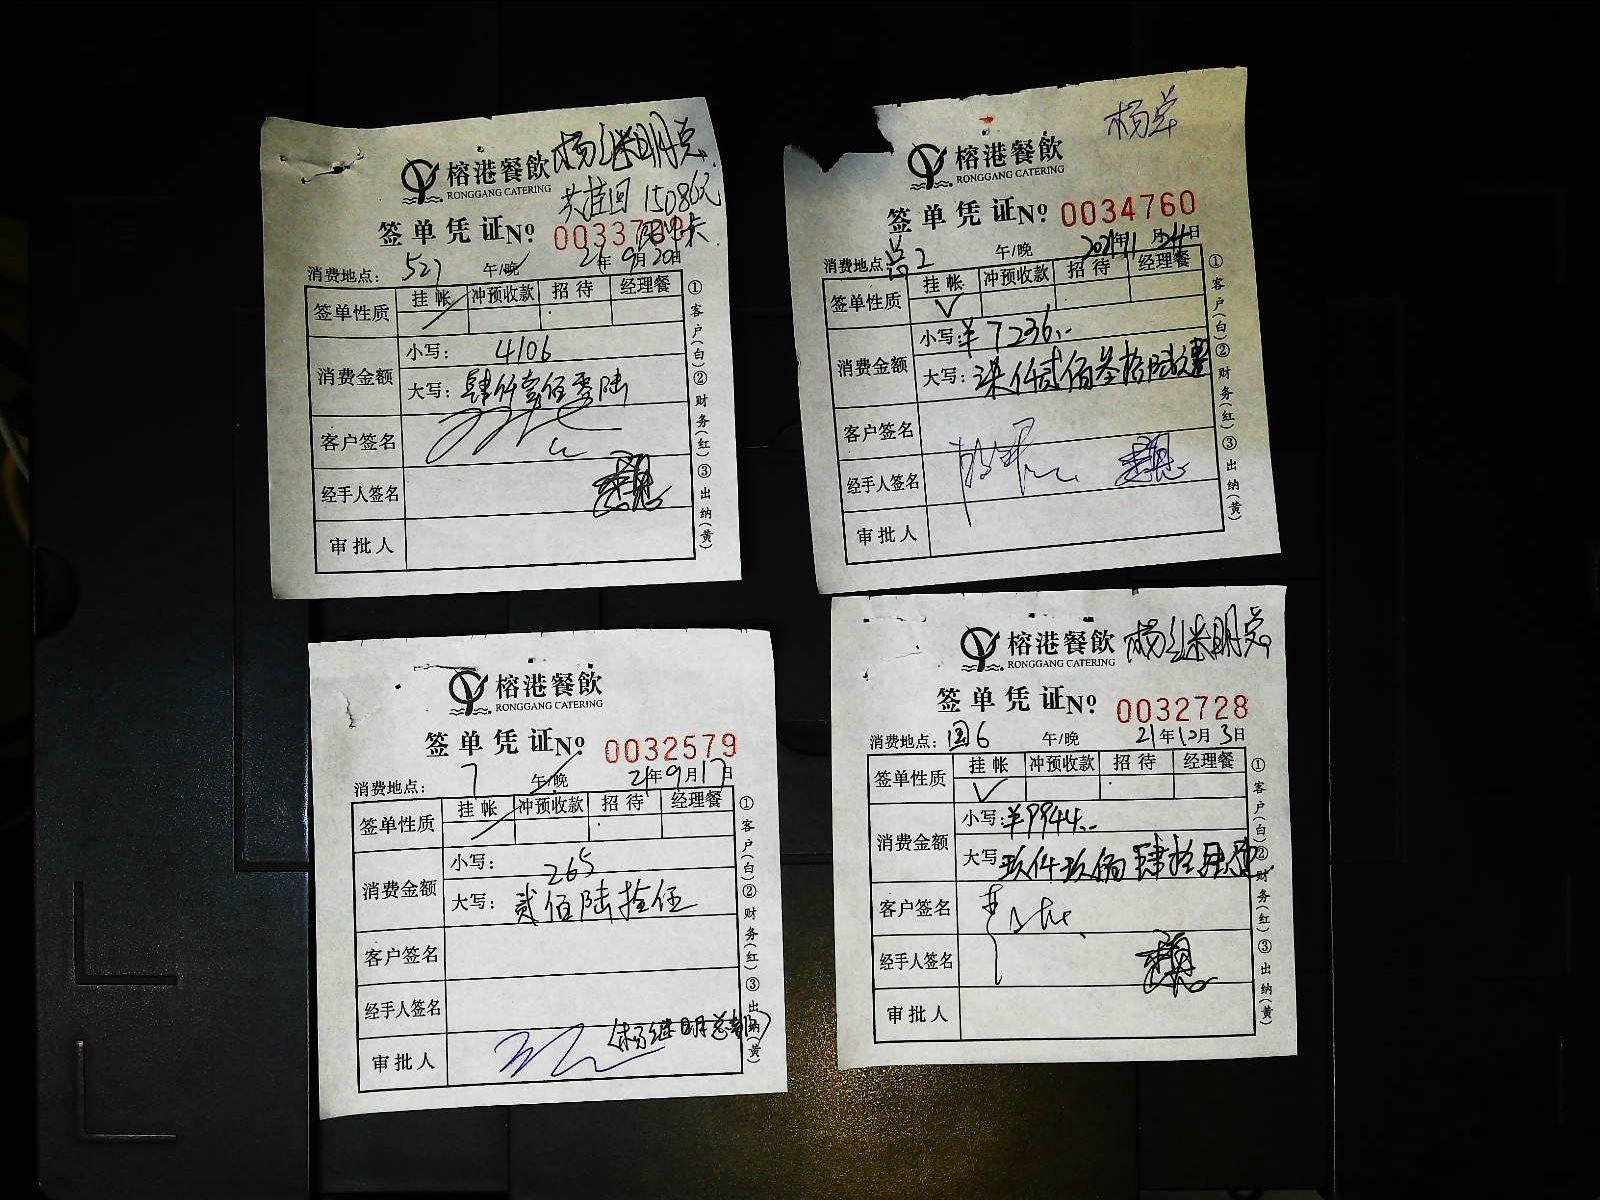 杨继明总
榕港餐飲
RONGGANG CATERING
共挂回 15086元
签单凭证 Nº 0033709
消费地点: 527 午/晚 21年9月20日
签单性质 挂帐 冲预收款 招待 经理餐
消费金额 小写: 4106
大写: 肆仟壹佰零陆
客户签名
经手人签名
审批人
①客户(白)②财务(红)③出纳(黄)
杨总
榕港餐飲
RONGGANG CATERING
签单凭证 Nº 0034760
消费地点: 总2 午/晚 2021年11月24日
签单性质 挂帐 冲预收款 招待 经理餐
消费金额 小写: ¥7236.-
大写: 柒仟贰佰叁拾陆元整
客户签名
经手人签名
审批人
①客户(白)②财务(红)③出纳(黄)
榕港餐飲
RONGGANG CATERING
签单凭证 Nº 0032579
消费地点: 7 午/晚 21年9月17日
签单性质 挂帐 冲预收款 招待 经理餐
消费金额 小写: 265
大写: 贰佰陆拾伍
客户签名
经手人签名
(杨继明总部)
审批人
①客户(白)②财务(红)③出纳(黄)
榕港餐飲 杨继明总
RONGGANG CATERING
签单凭证 Nº 0032728
消费地点: 国6 午/晚 21年10月3日
签单性质 挂帐 冲预收款 招待 经理餐
消费金额 小写: ¥9944.-
大写: 玖仟玖佰肆拾肆元
客户签名
经手人签名
审批人
①客户(白)②财务(红)③出纳(黄)